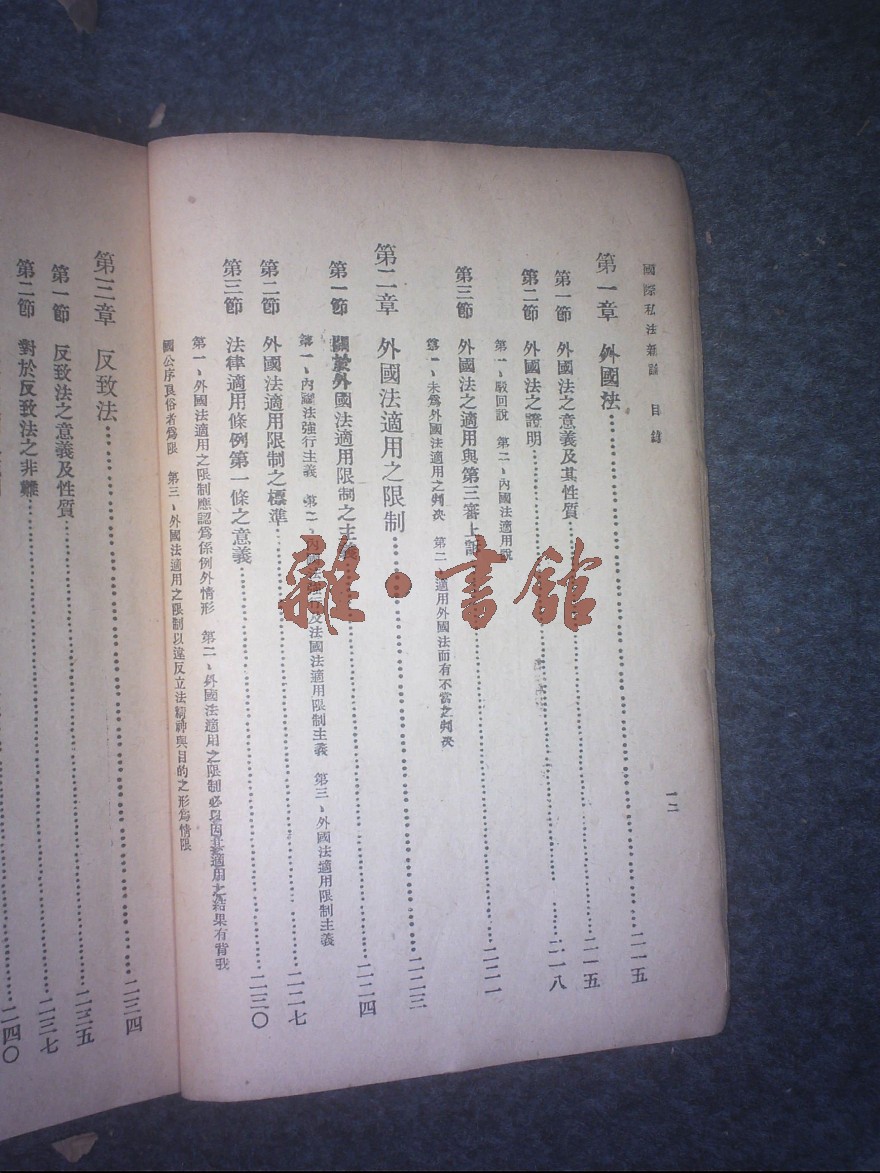 國際私法新論 目錄 一二
第一章 外國法……二一五
第一節 外國法之意義及其性質……二一五
第二節 外國法之證明……二一八
第一、駁回說 第二、內國法適用說
第三節 外國法之適用與第三審上訴……二二一
第一、未爲外國法適用之判決 第二、適用外國法而有不當之判決
第二章 外國法適用之限制……二二三
第一節 關於外國法適用限制之主義……二二四
第一、內國法強行主義 第二、內國法強行及法國法適用限制主義 第三、外國法適用限制主義
第二節 外國法適用限制之標準……二二七
第三節 法律適用條例第一條之意義……二三〇
第一、外國法適用之限制應認爲係例外情形 第二、外國法適用之限制必以因其適用之結果有背我
國公序良俗者爲限 第三、外國法適用之限制以違反立法精神與目的之形爲情限
第三章 反致法……二三四
第一節 反致法之意義及性質……二三五
第二節 對於反致法之非難……二三七
二四〇
雜·書館